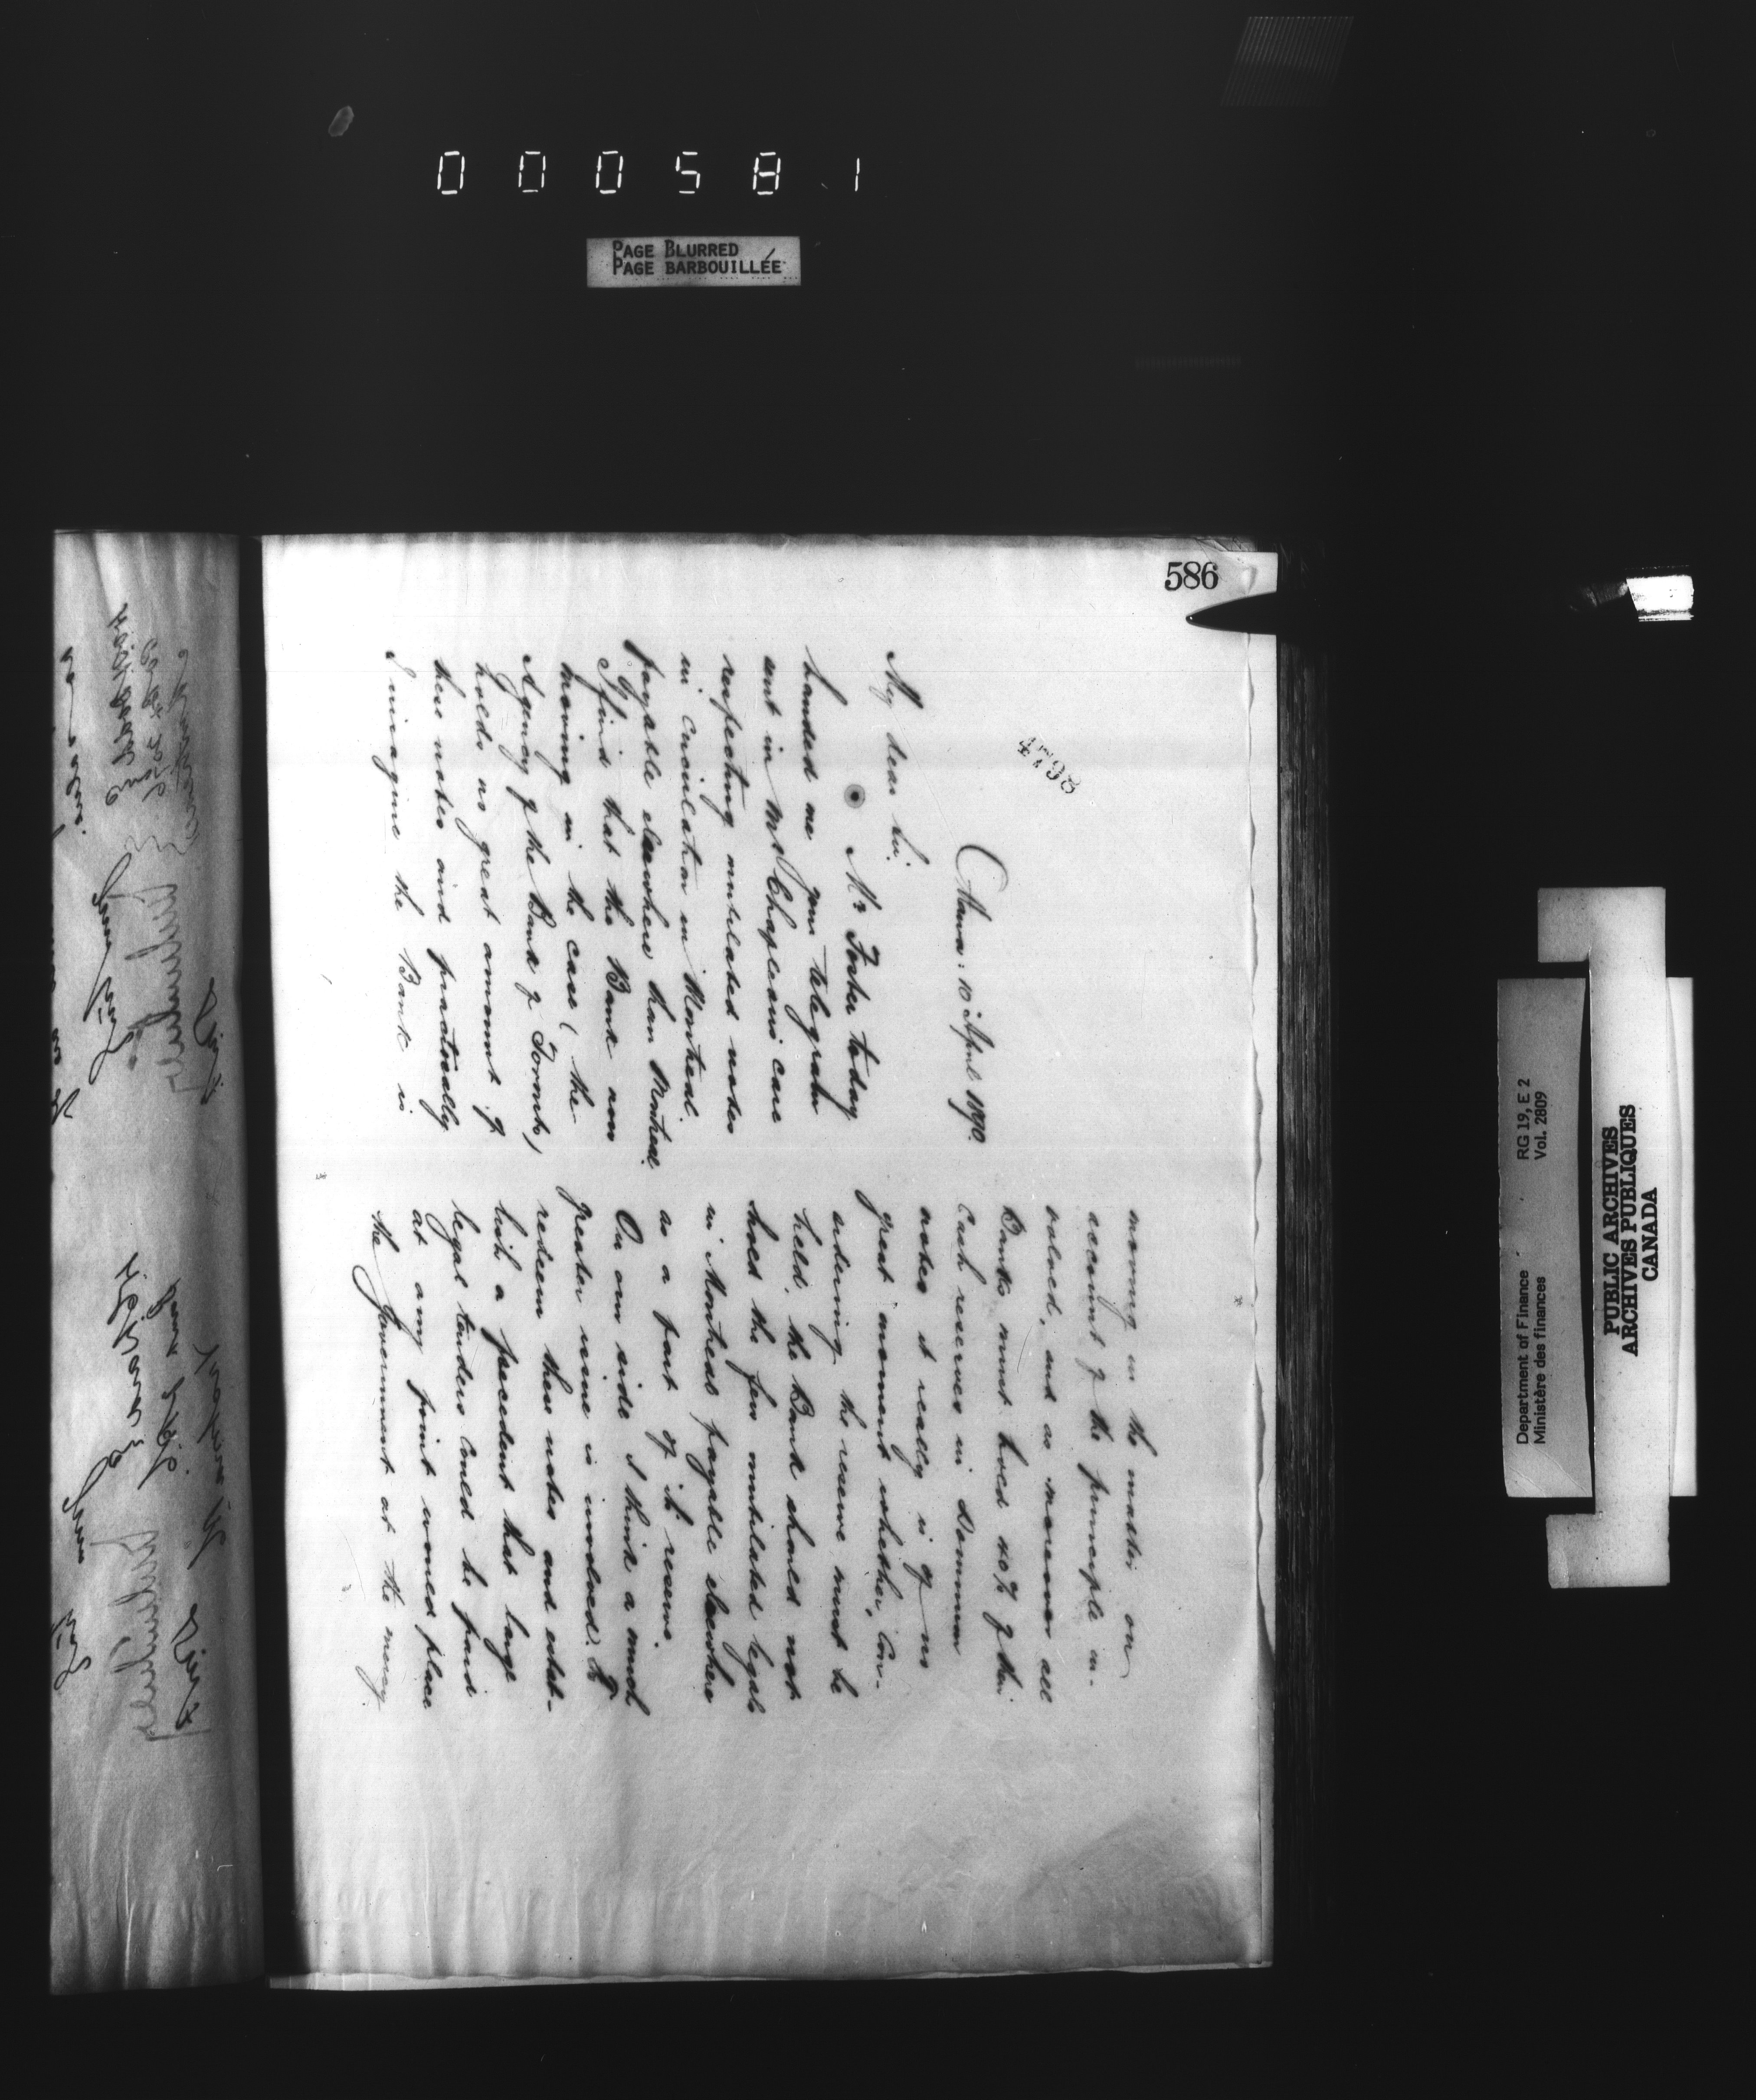 000581
PAGE BLURRED
PAGE BARBOUILLÉE
586
4798
Ottawa: 10 April 1890.
My dear Sir,
Mr Foster today
handed me your telegram
sent in Mr Chapleau's care
respecting mutilated notes
in circulation in Montreal
payable elsewhere than Montreal.
I find that the Bank now
moving in the case (the
Agency of the Bank of Toronto)
holds no great amount of
these notes and practically
I imagine the Bank is
moving in the matter on
account of the principle in-
volved, and as moreover all
Banks must hold 40% of their
Cash reserves in Dominion
notes it really is of no
great moment whether, con-
sidering the reserve must be
held, the Bank should not
hold the few mutilated legals
in Montreal payable elsewhere
as a part of its reserve.
On our side I think a much
greater issue is involved. To
redeem these notes and estab-
lish a precedent that large
legal tenders could be paid
at any point would place
the Government at the mercy
Department of Finance
Ministère des finances
RG 19, E 2
Vol. 2809
PUBLIC ARCHIVES
ARCHIVES PUBLIQUES
CANADA